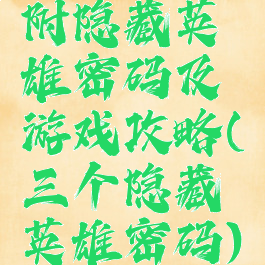 附隐藏英
雄密码及
游戏攻略(
三个隐藏
英雄密码)